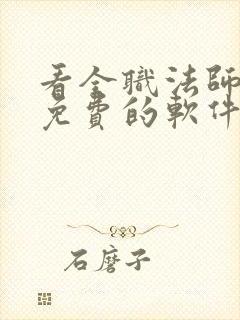 看全職法師
免費的軟件
石磨子